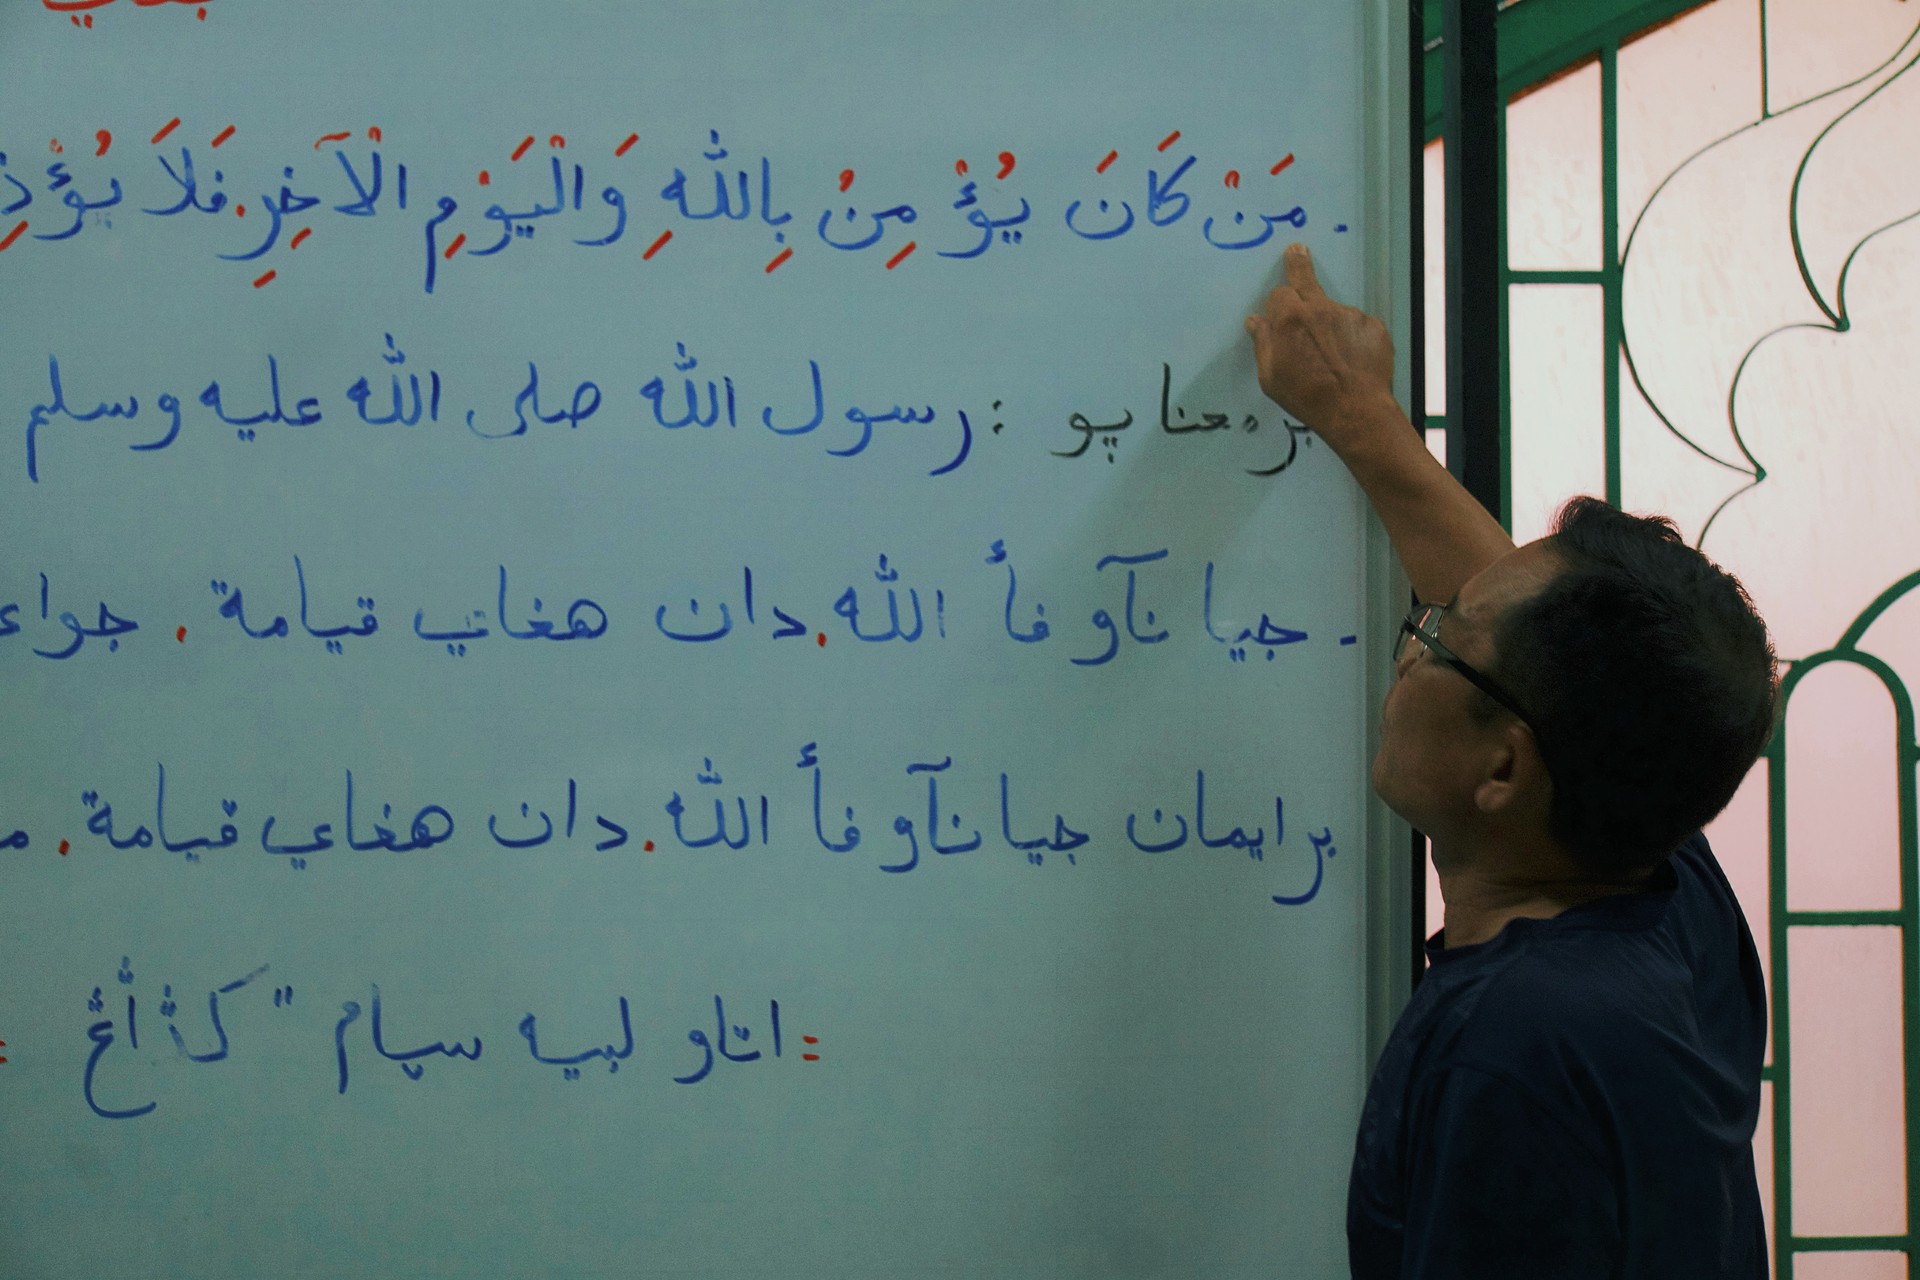 . مَنْ كَانَ يُؤْمِنُ بِاللّٰهِ وَالْيَوْمِ الْآخِرِ. فَلَا يُؤْذِ
برمعنا يو : رسول اللّٰه صلى اللّٰه عليه وسلم
. جيا نآو فأ اللّٰه. دان هغاي قيامة . جواء
برايمان جيا نآو فأ اللّٰه. دان هغاي قيامة .
= اتاو لبيه سيام "